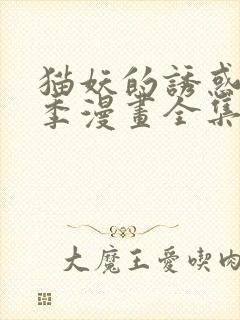 猫妖的誘惑
季漫畫全集
大魔王愛喫肉